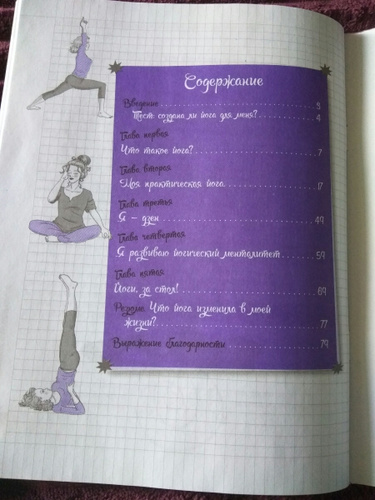 Содержание
Введение 3
Тест: создана ли йога для меня? 4
Глава первая
Что такое йога? 7
Глава вторая
Моя практическая йога 17
Глава третья
Я – дзен 49
Глава четвертая
Я развиваю йогический менталитет 59
Глава пятая
Йоги, за стол! 69
Резюме. Что йога изменила в моей
жизни? 77
Выражение благодарности 79